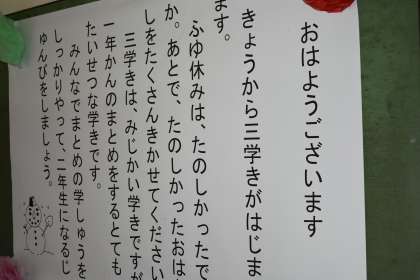 おはようございます
きょうから三学きがはじま
ます。
ふゆ休みは、たのしかったで
か。あとで、たのしかったおは
しをたくさんきかせてください
三学きは、みじかい学きですが
一年かんのまとめをするとても
たいせつな学きです。
みんなでまとめの学しゅうを
しっかりやって、二年生になるじ
ゅんびをしましょう。